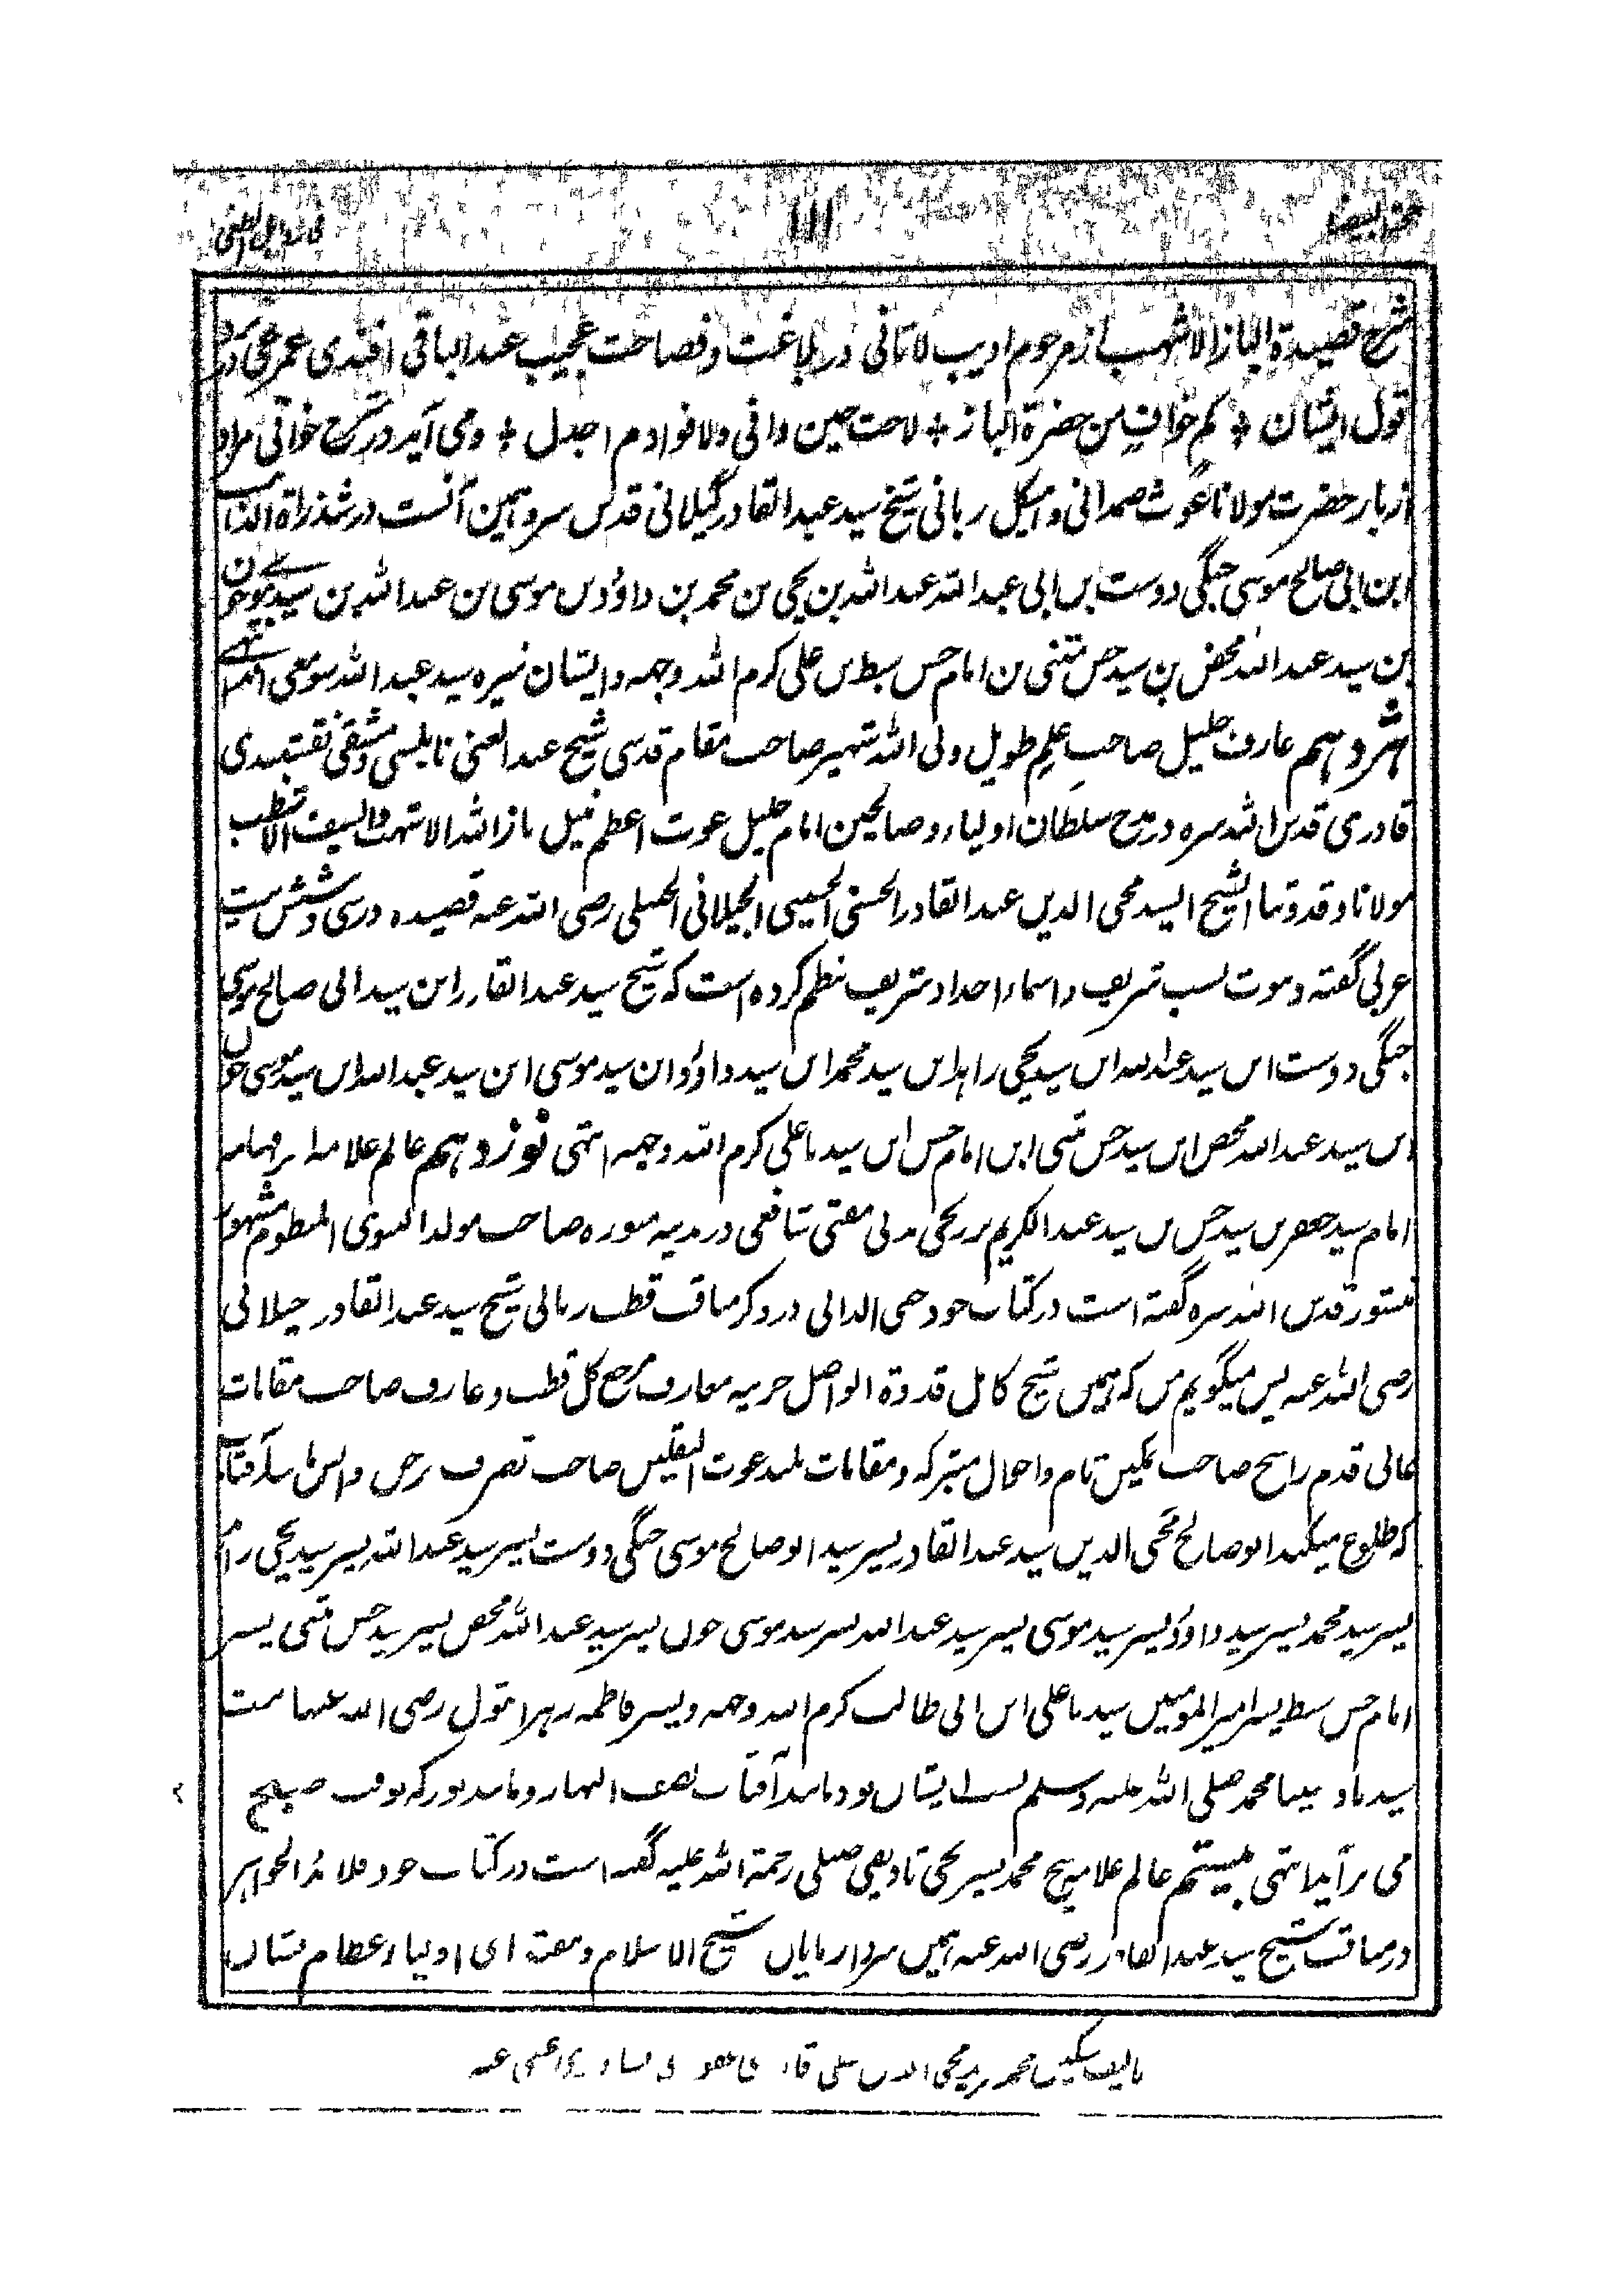 ١١١
شرح قصیدة الباز الاشهب از مرحوم ادیب لاثانی در بلاغت و فصاحت عجیب عبد الباقی افندی عمری در
قول ایشان * کم خوافٍ من حضرة الباز * لاحت حین وافی ولا قوادم اجدل * ومی آید در شرح خوافی مراد
از باز حضرت مولانا غوث صمدانی و هیکل ربانی شیخ سید عبد القادر گیلانی قدس سره و همین آنست در شذراة الذهب
ابن ابی صالح موسی جنگی دوست بن ابی عبد الله عبد الله بن یحیی بن محمد بن داؤد بن موسی بن عبد الله بن سید موسی جون
بن سید عبد الله محض بن سید حسن مثنی بن امام حسن سبط بن علی کرم الله وجهه و ایشان نبیره سید عبد الله صومعی انتهی
هژدهم عارف جلیل صاحب علم طویل ولی الله شهیر صاحب مقام قدسی شیخ عبد الغنی نابلسی دمشقی نقشبندی
قادری قدس الله سره در مدح سلطان اولیاء و صالحین امام جلیل غوث اعظم نبیل باز الله الاشهب والسیف الاشطب
مولانا و قدوتنا الشیخ السید محی الدین عبد القادر الحسنی الحسینی الجیلانی الحنبلی رضی الله عنه قصیده در سی و شش بیت
عربی گفته و ثبوت نسب شریف و اسماء اجداد شریف نظم کرده است که شیخ سید عبد القادر ابن سید ابی صالح موسی
جنگی دوست ابن سید عبد الله ابن سید یحیی زاهد ابن سید محمد ابن سید داؤد ابن سید موسی ابن سید عبد الله ابن سید موسی جون
ابن سید عبد الله محض ابن سید حسن مثنی ابن امام حسن ابن سیدنا علی کرم الله وجهه انتهی نوزدهم عالم علامه فهامه
امام سید جعفر بن سید حسن بن سید عبد الکریم برزنجی مدنی مفتی شافعی در مدینه منوره صاحب مولد النبوی المنظوم مشهور
قدس الله سره گفته است در کتاب خود جنی الدانی در ذکر مناقب قطب ربانی شیخ سید عبد القادر جیلانی
رضی الله عنه پس میگویم من که همین شیخ کامل قدوة الواصل خزینه معارف مرجع کل قطب و عارف صاحب مقامات
عالی قدم راسخ صاحب تمکین تام و احوال متبرکه و مقامات بلند غوث الثقلین صاحب تصرف بر جن و انس مانند آفتاب
که طلوع میکند ابو صالح محی الدین سید عبد القادر پسر سید ابو صالح موسی جنگی دوست پسر سید عبد الله پسر سید یحیی زاهد
پسر سید محمد پسر سید داؤد پسر سید موسی پسر سید عبد الله پسر سید موسی جون پسر سید عبد الله محض پسر سید حسن مثنی پسر
امام حسن سبط پسر امیر المومنین سیدنا علی ابن ابی طالب کرم الله وجهه و پسر فاطمه زهرا بتول رضی الله عنها بنت
سیدنا و نبینا محمد صلی الله علیه وسلم نسب ایشان بود مانند آفتاب نصف النهار و مانند نور که بوقت صبح
می برآید انتهی بیستم عالم علامه شیخ محمد پسر یحیی تادیفی حنبلی رحمة الله علیه گفته است در کتاب خود قلائد الجواهر
در مناقب شیخ سید عبد القادر رضی الله عنه همین سردار مایان شیخ الاسلام و مقتدای اولیاء عظام نشان
تالیف مسکین محمد میر محی الدین عفی عنه